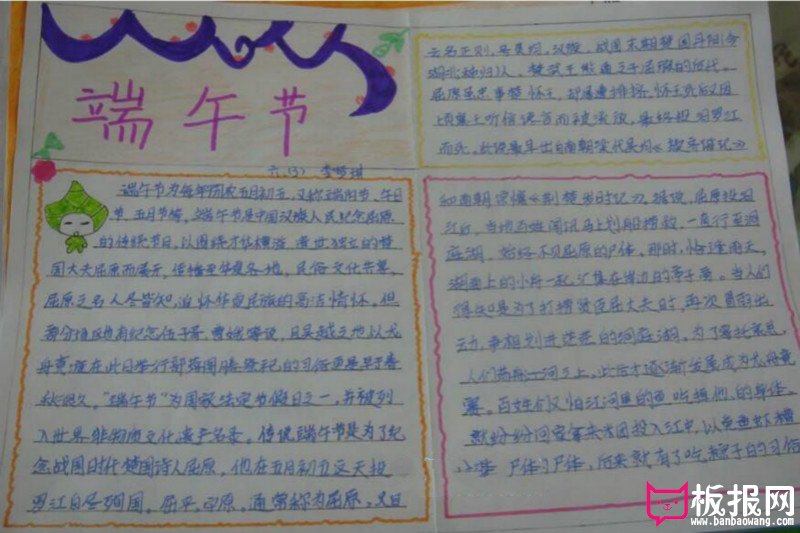 端午节
六.(3)
端午节为每年农历五月初五,又称端阳节、午日
节、五月节等。端午节是中国汉族人民纪念屈原
的传统节日,以围绕才华横溢、遗世独立的楚
国大夫屈原而展开,传播至华夏各地,民俗文化共享,
屈原之名人尽皆知,追怀华夏民族的高洁情怀。但
部分地区也有纪念伍子胥、曹娥等说,且吴越之地以龙
舟竞渡在此日举行部落图腾祭祀的习俗更是早于春
秋很久。"端午节"为国家法定节假日之一,并被列
入世界非物质文化遗产名录。传说端午节是为了纪
念战国时代楚国诗人屈原,他在五月初五这天投
罗江自尽殉国。屈平,字原,通常称为屈原,又自
云名正则,号灵均,汉族,战国末期楚国丹阳(今
湖北秭归)人,楚武王熊通之子屈瑕的后代。
屈原虽忠事楚怀王,却屡遭排挤,怀王死后又因
上顷襄王听信谗言而被流放,最终投汨罗江
而死。传说最早出自南朝梁代吴均《续齐谐记》
和南朝宗懔《荆楚岁时记》。据说,屈原投汨
江后,当地百姓闻讯马上划船捞救,一直行至洞
庭湖,始终不见屈原的尸体。那时,恰逢雨天,
湖面上的小舟一起汇集在岸边的亭子旁。当人们
得知是为了打捞贤臣屈大夫时,再次冒雨出
动,争相划进茫茫的洞庭湖。为了寄托哀思,
人们荡舟江河之上,此后才逐渐发展成为龙舟竞
赛。百姓们又怕江河里的鱼吃掉他的身体,
就纷纷回家拿来米团投入江中,以免鱼虾糟
尸体,后来就有了吃粽子的习俗
板报网
www.banbaowang.com